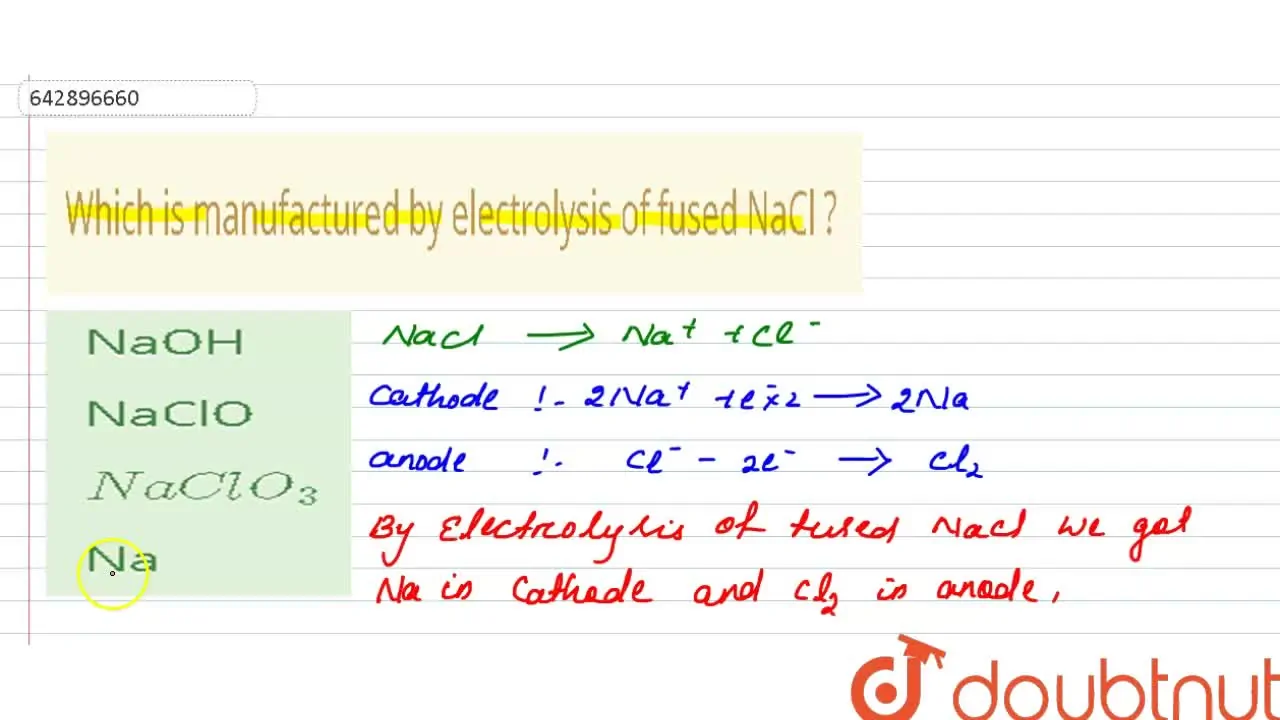 642896660
Which is manufactured by electrolysis of fused NaCl ?
NaOH
NaClO
NaClO₃
Na
NaCl ⟶ Na⁺ + Cl⁻
Cathode :- 2Na⁺ + e⁻×2 ⟶ 2Na
anode :- Cl⁻ - 2e⁻ ⟶ Cl₂
By Electrolysis of fused NaCl we get
Na in Cathode and Cl₂ in anode,
doubtnut